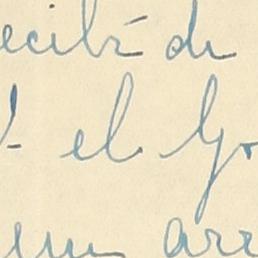 ecibí de
el Go
en arr